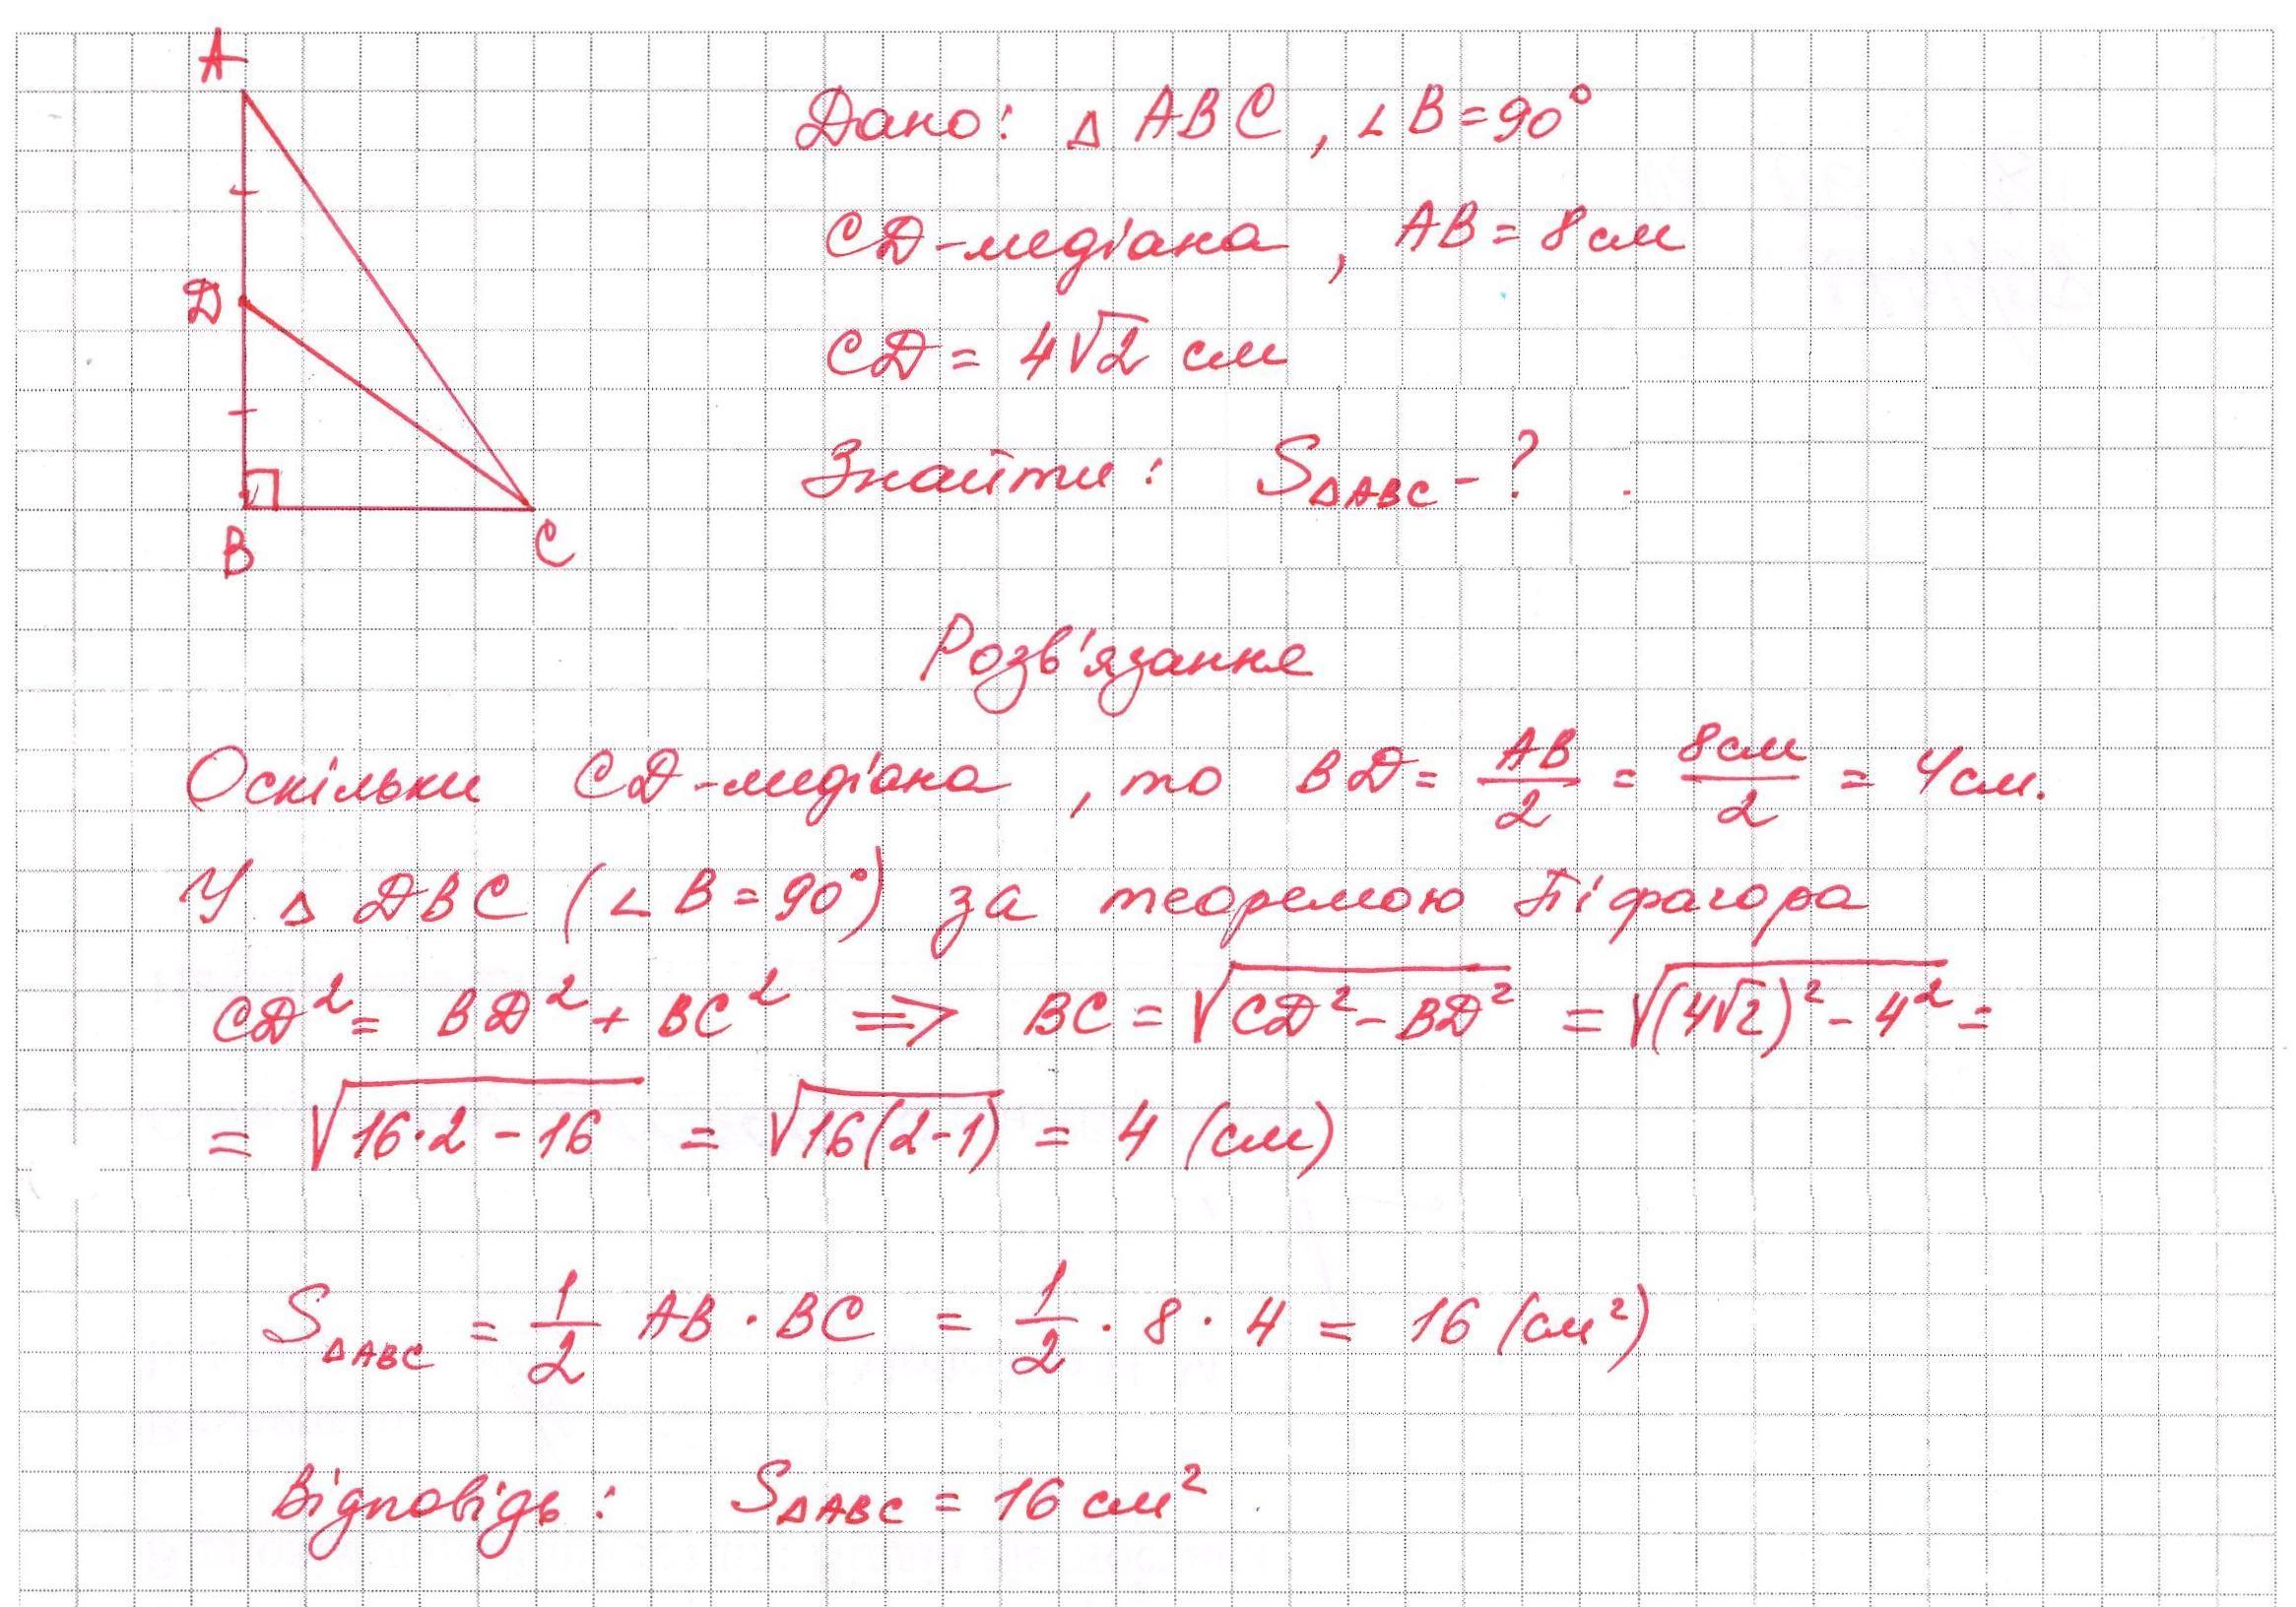 A
Дано: △ ABC, ∠B=90°
CD-медіана, AB = 8 см
D
CD = 4√2 см
Знайти: S△ABC - ?
B
C
Розв'язання
Оскільки CD-медіана, то BD = AB/2 = 8см/2 = 4см.
У △ DBC (∠B=90°) за теоремою Піфагора
CD² = BD² + BC² => BC = √(CD² - BD²) = √((4√2)² - 4²) =
= √(16·2 - 16) = √(16(2-1)) = 4 (см)
S△ABC = 1/2 AB · BC = 1/2 · 8 · 4 = 16 (см²)
Відповідь: S△ABC = 16 см²